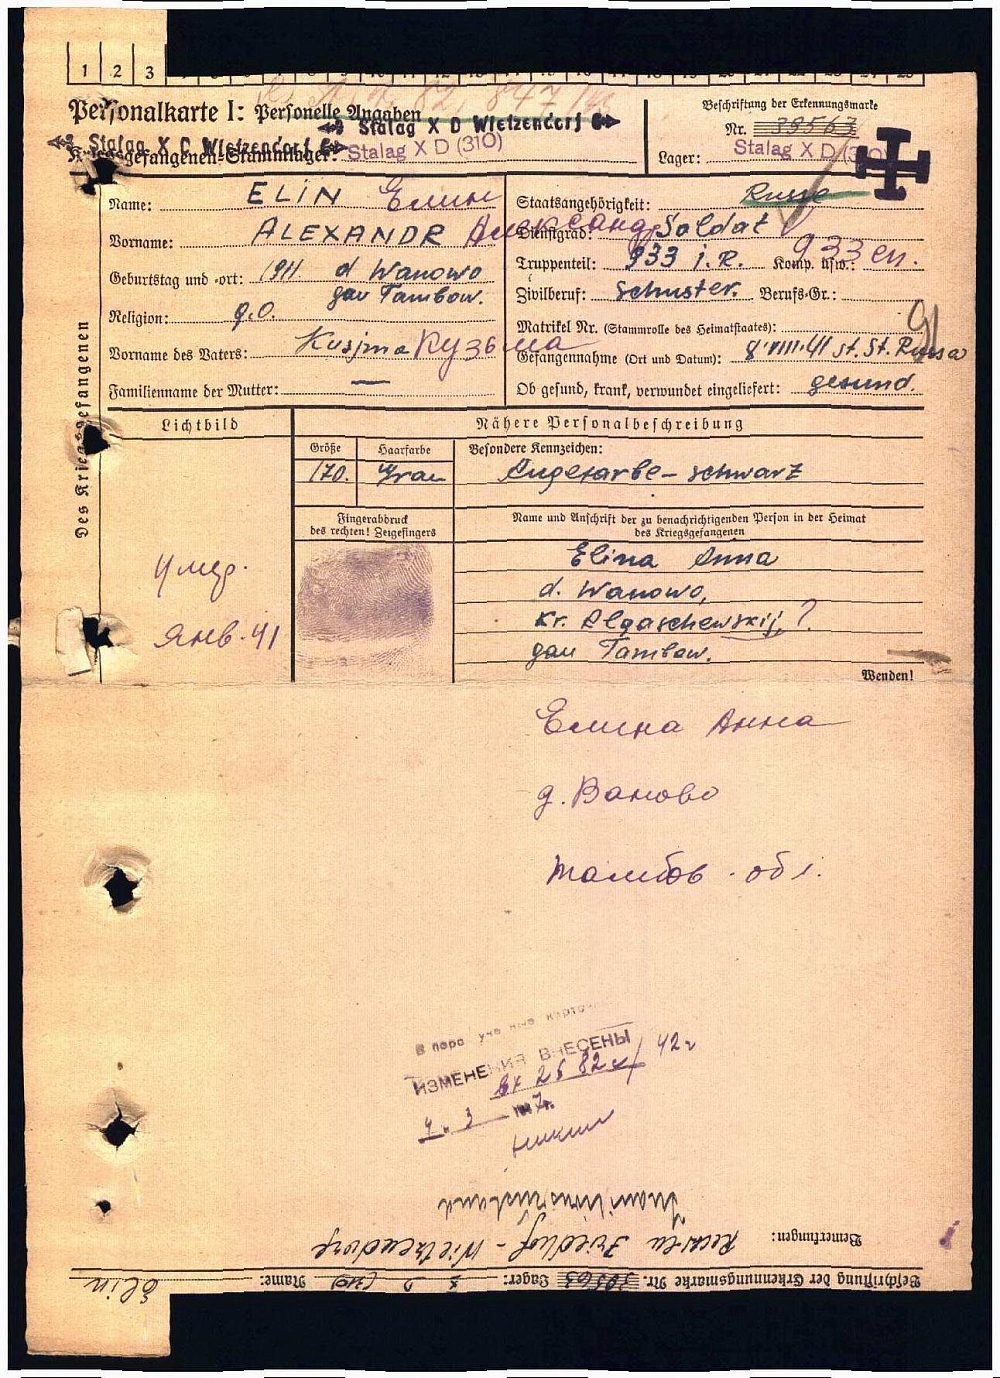 1 2 3
Personalkarte I: Personelle Angaben
Stalag X D Wietzendorf
Stalag X C Wietzendorf
Kriegsgefangenen-Stammlager: Stalag X D (310)
Beschriftung der Erkennungsmarke
Nr. 38563
Lager: Stalag X D (310)
Des Kriegsgefangenen
Name: ELIN Елин
Vorname: ALEXANDR Александр
Geburtstag und -ort: 1911 d Wanowo
gau Tambow.
Religion: g.o.
Vorname des Vaters: Kusjma Кузьма
Familienname der Mutter: —
Staatsangehörigkeit: Russe
Dienstgrad: Soldat
Truppenteil: 933 i.R. Komp. usw.: 933 сп.
Zivilberuf: Schuster. Berufs-Gr.:
Matrikel Nr. (Stammrolle des Heimatstaates):
Gefangennahme (Ort und Datum): 8.VIII.41 st. St. Russa
Ob gesund, krank, verwundet eingeliefert: gesund.
Lichtbild
Nähere Personalbeschreibung
Größe Haarfarbe Besondere Kennzeichen:
170. Grau Augefarbe - schwarz
Fingerabdruck
des rechten! Zeigefingers
Name und Anschrift der zu benachrichtigenden Person in der Heimat
des Kriegsgefangenen
Elina Anna
d. Wanowo,
Kr. Algaschewskij, ?
gau Tambow.
Wenden!
Умер.
Янв. 41
Елина Анна
д. Ваново
Тамбов. обл.
ИЗМЕНЕНИЯ ВНЕСЕНЫ
Вх 2582с/42г
4. 3
Bemerkungen:
Friedhof - Wietzendorf
Beschriftung der Erkennungsmarke Nr. 38563 Lager: X D (310) Name: Elin